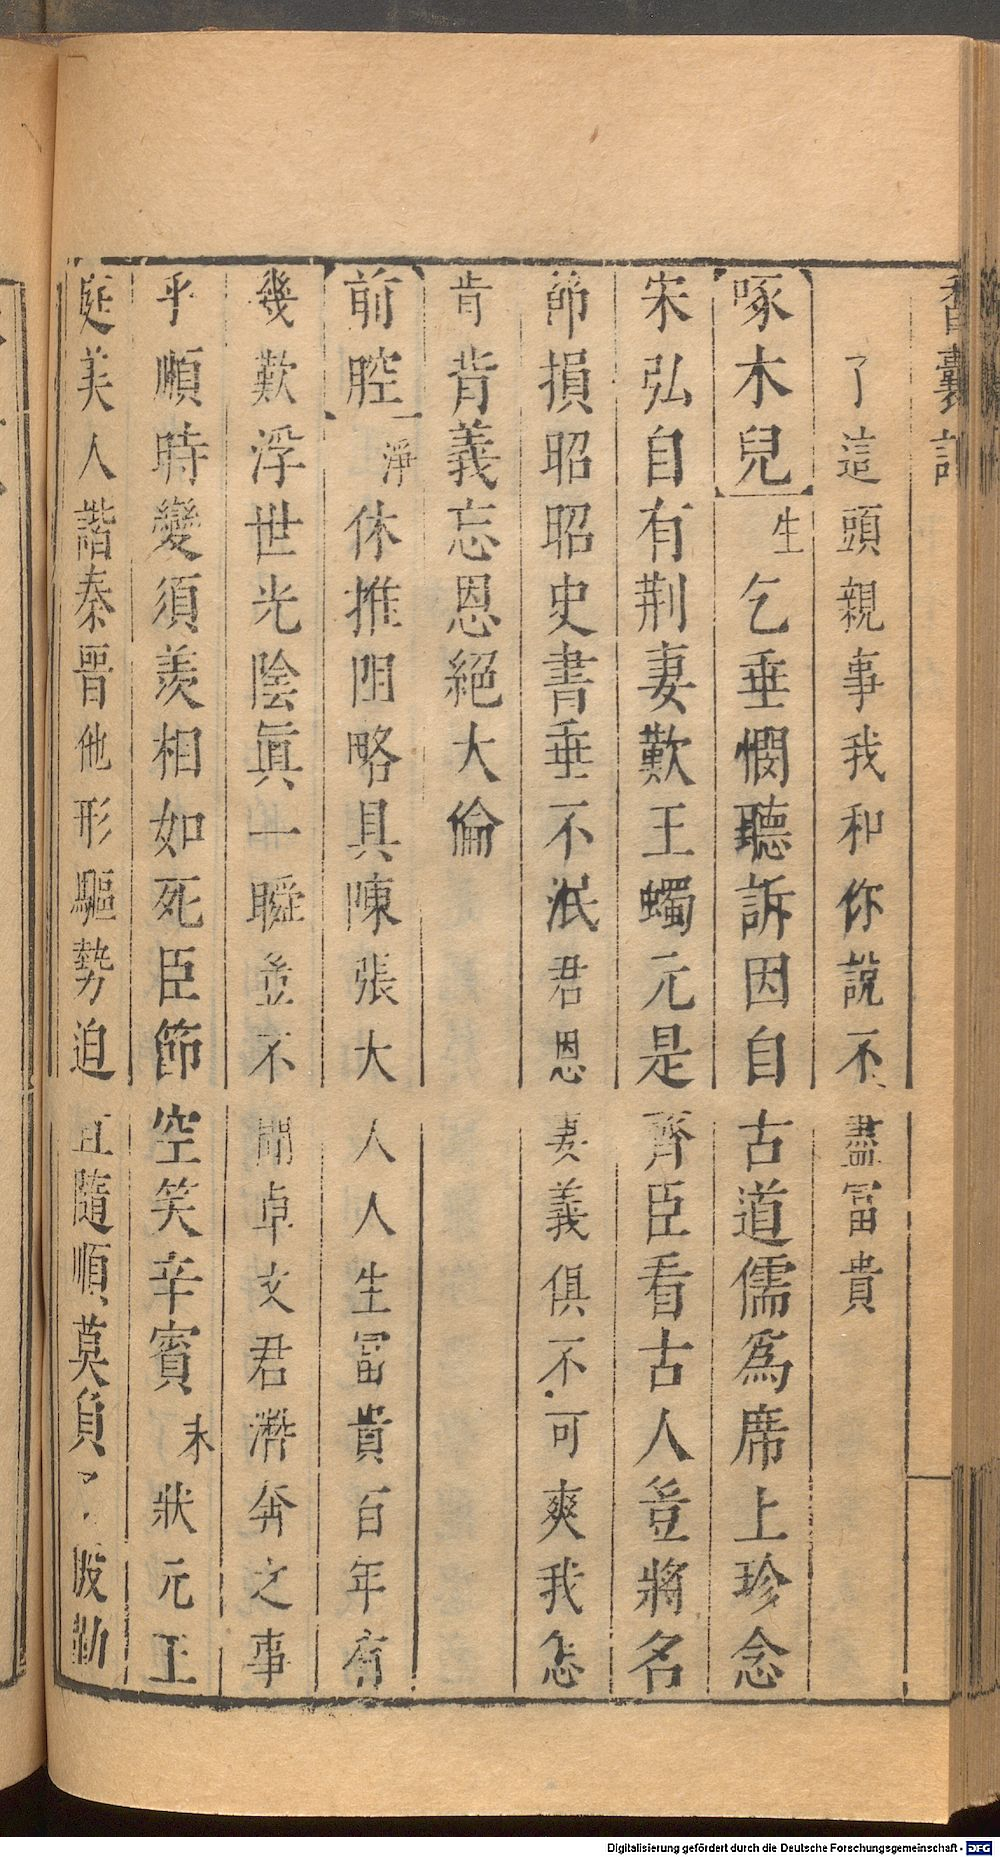 香囊記
了這頭親事我和你說不盡冨貴
啄木兒生乞垂憫聽訴因自古道儒爲席上珍念
宋弘自有荆妻歎王蠋元是齊臣看古人豈將名
節損昭昭史書垂不泯君恩妻義俱不可爽我怎
肯背義忘恩絕大倫
前腔淨休推阻略具陳張大人人生冨貴百年有
幾歎浮世光陰眞一瞬豈不聞卓文君濟奔之事
乎順時變須羨相如死臣節空笑辛賓末狀元王
庭美人諧秦晉他形驅勢迫且隨順莫負
Digitalisierung gefördert durch die Deutsche Forschungsgemeinschaft - DFG